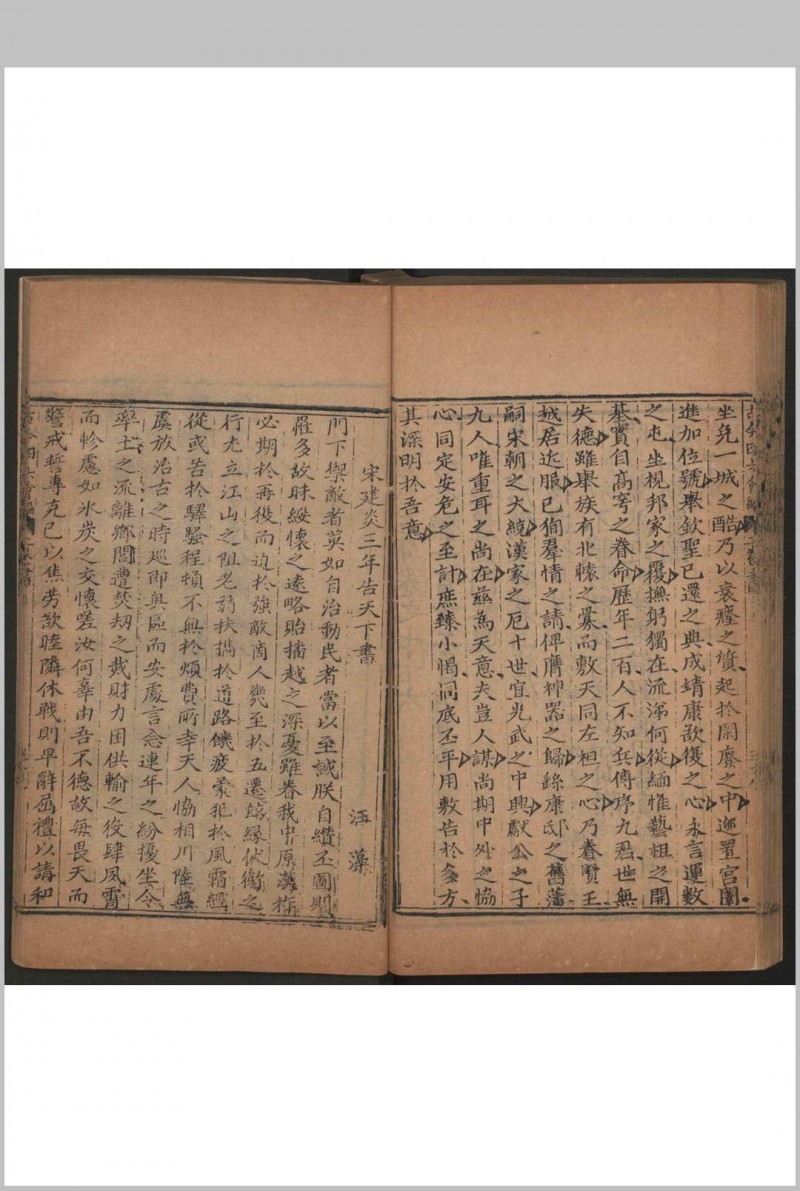 坐免一城之酷乃以衰癃之質起於閒廢之中迎置宮闈
進加位號舉欽聖已還之典成靖康欲復之心永言運數
之屯坐視邦家之覆撫躬獨在流涕何從緬惟藝祖之開
基實自高穹之眷命歷年二百人不知兵傳序九君世無
失德雖舉族有北轅之釁而敷天同左袒之心乃眷賢王
越居近服已徇羣情之請俾膺神器之歸繇康邸之舊藩
嗣宋朝之大統漢家之厄十世宜光武之中興獻公之子
九人唯重耳之尚在茲為天意夫豈人謀尚期中外之協
心同定安危之至計庶臻小愒同底丕平用敷告於多方
其深明於吾意
宋建炎三年告天下書
汪藻
門下禦敵者莫如自治動民者當以至誠朕自纘丕圖則
罹多故昧綏懷之遠略貽播越之深憂雖眷我中原漢祚
必期於再復而迫於強敵商人幾至於五遷茲緣伏衞之
行尤立江山之阻老弱扶攜於道路饑疲蒙犯於風霜經
從或苦於驛騷程頓不無於煩費所幸天人恊相川陸無
虞放治古之時巡即奧區而安處言念連年之紛擾坐令
率土之流離鄉閭遭焚刧之災財力困供輸之役肆夙宵
而軫慮如氷炭之交懷嗟汝何辜由吾不德故每畏天而
警戒誓專克己以焦勞欲睦隣休戰則卑辭厚禮以請和